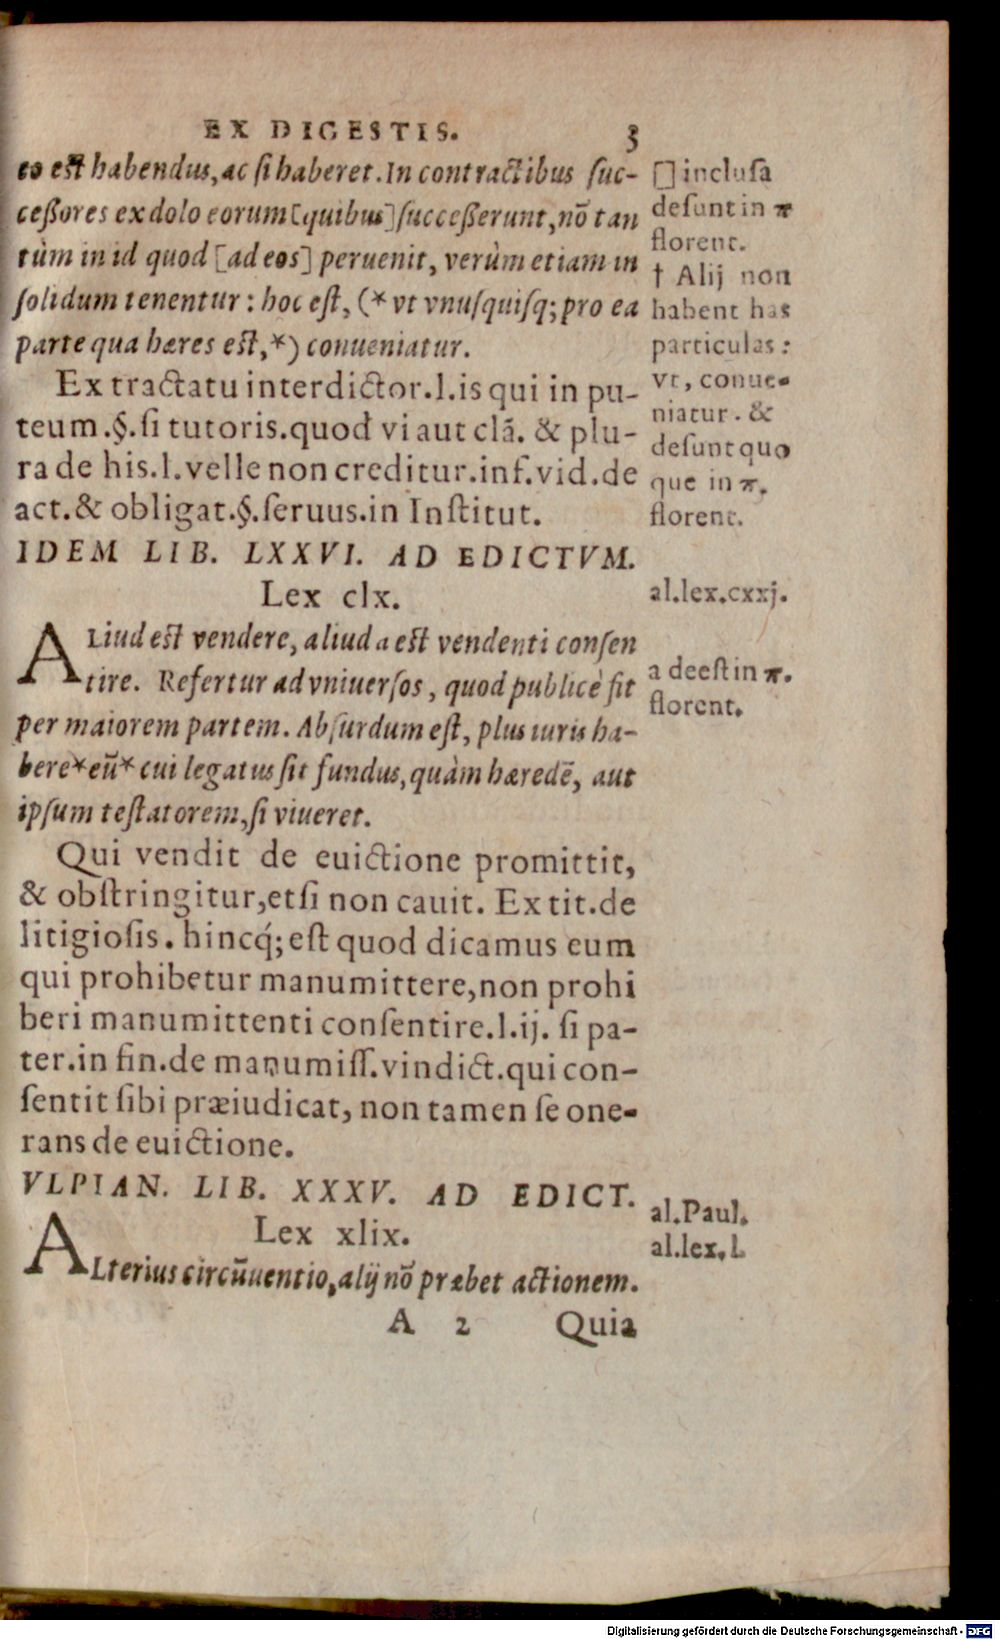 EX DIGESTIS. 3
eo est habendus, ac si haberet. In contractibus suc-
ceßores ex dolo eorum [quibus] succeßerunt, nõ tan
tùm in id quod [ad eos] peruenit, verùm etiam in
solidum tenentur: hoc est, (* vt vnusquisq; pro ea
parte qua hæres est, *) conueniatur.
[] inclusa
desunt in π
florent.
† Alij non
habent has
particulas:
vt, conue-
niatur. &
desunt quo
que in π.
florent.
Ex tractatu interdictor. l. is qui in pu-
teum. §. si tutoris. quod vi aut clã. & plu-
ra de his. l. velle non creditur. inf. vid. de
act. & obligat. §. seruus. in Institut.
IDEM LIB. LXXVI. AD EDICTVM.
Lex clx.
al. lex. cxxj.
ALiud est vendere, aliud a est vendenti consen
tire. Refertur ad vniuersos, quod publicè fit
per maiorem partem. Absurdum est, plus iuris ha-
bere * eũ * cui legatus sit fundus, quàm hæredẽ, aut
ipsum testatorem, si viueret.
a deest in π.
florent.
Qui vendit de euictione promittit,
& obstringitur, etsi non cauit. Ex tit. de
litigiosis. hincq́; est quod dicamus eum
qui prohibetur manumittere, non prohi
beri manumittenti consentire. l. ij. si pa-
ter. in fin. de manumiss. vindict. qui con-
sentit sibi præiudicat, non tamen se one-
rans de euictione.
VLPIAN. LIB. XXXV. AD EDICT.
Lex xlix.
al. Paul.
al. lex. l.
ALterius circũuentio, alij nõ præbet actionem.
A 2 Quia
Digitalisierung gefördert durch die Deutsche Forschungsgemeinschaft - DFG